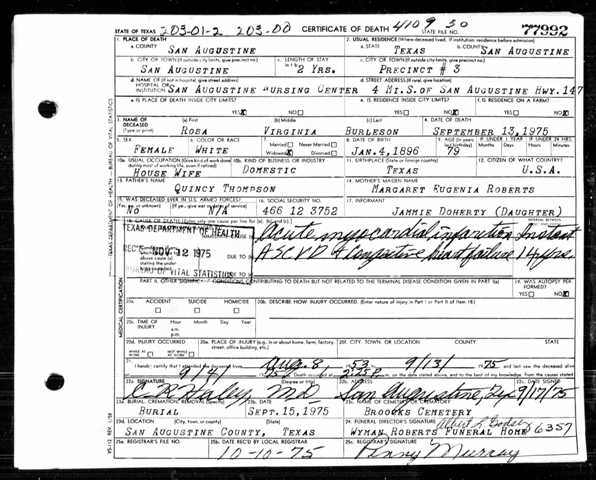 203-01-2 203-00 4109 30
STATE OF TEXAS CERTIFICATE OF DEATH STATE FILE NO. 77992
1. PLACE OF DEATH 2. USUAL RESIDENCE (Where deceased lived. If institution: residence before admission)
a. COUNTY SAN AUGUSTINE a. STATE TEXAS b. COUNTY SAN AUGUSTINE
b. CITY OR TOWN (If outside city limits, give precinct no.) c. LENGTH OF STAY c. CITY OR TOWN (If outside city limits, give precinct no.)
SAN AUGUSTINE 2 YRS. PRECINCT # 3
d. NAME OF (If not in hospital, give street address) d. STREET ADDRESS (If rural, give location)
HOSPITAL OR INSTITUTION SAN AUGUSTINE NURSING CENTER 4 MI.S.OF SAN AUGUSTINE HWY.147
e. IS PLACE OF DEATH INSIDE CITY LIMITS? e. IS RESIDENCE INSIDE CITY LIMITS? f. IS RESIDENCE ON A FARM?
YES X NO YES NO X YES NO X
3. NAME OF DECEASED (a) First (b) Middle (c) Last 4. DATE OF DEATH
(Type or print) ROSA VIRGINIA BURLESON SEPTEMBER 13,1975
5. SEX 6. COLOR OR RACE 7. Married Never Married 8. DATE OF BIRTH 9. AGE IF UNDER 1 YEAR IF UNDER 24 HRS.
FEMALE WHITE Widowed X Divorced JAN.4,1896 79
10a. USUAL OCCUPATION (Give kind of work done during most of working life, even if retired) 10b. KIND OF BUSINESS OR INDUSTRY 11. BIRTHPLACE (State or foreign country) 12. CITIZEN OF WHAT COUNTRY?
HOUSE WIFE DOMESTIC TEXAS U.S.A.
13. FATHER'S NAME 14. MOTHER'S MAIDEN NAME
QUINCY THOMPSON MARGARET EUGENIA ROBERTS
15. WAS DECEASED EVER IN U.S. ARMED FORCES? 16. SOCIAL SECURITY NO. 17. INFORMANT
NO N/A 466 12 3752 JAMMIE DOHERTY (DAUGHTER)
18. CAUSE OF DEATH (Enter only one cause per line for (a), (b), and (c).)
TEXAS DEPARTMENT OF HEALTH Acute myocardial infarction Instant
REC'D NOV 12 1975 DUE TO ASCVD & Congestive heart failure 14 yrs.
BUREAU OF VITAL STATISTICS DUE TO
PART II. OTHER SIGNIFICANT CONDITIONS CONTRIBUTING TO DEATH BUT NOT RELATED TO THE TERMINAL DISEASE CONDITION GIVEN IN PART I(a) 19. WAS AUTOPSY PERFORMED?
YES NO X
20a. ACCIDENT SUICIDE HOMICIDE 20b. DESCRIBE HOW INJURY OCCURRED. (Enter nature of injury in Part I or Part II of item 18.)
20c. TIME OF INJURY Hour Month Day Year
a.m.
p.m.
20d. INJURY OCCURRED 20e. PLACE OF INJURY (e.g. in or about home, farm, factory, street, office building, etc.) 20f. CITY, TOWN, OR LOCATION COUNTY STATE
WHILE AT WORK NOT WHILE AT WORK
21. I hereby certify that I attended the deceased from Aug. 8 53 9/13/ 75 and last saw the deceased alive
2:25P
22a. SIGNATURE (Degree or title) 22b. ADDRESS 22c. DATE SIGNED
M.D. San Augustine, Tex 9/17/75
23a. BURIAL, CREMATION, REMOVAL 23b. DATE 23c. NAME OF CEMETERY OR CREMATORY
BURIAL SEPT.15,1975 BROOKS CEMETERY
23d. LOCATION (City, town, or county) (State) 24. FUNERAL DIRECTOR'S SIGNATURE
SAN AUGUSTINE COUNTY, TEXAS WYMAN ROBERTS FUNERAL HOME 6357
25a. REGISTRAR'S FILE NO. 25b. DATE REC'D BY LOCAL REGISTRAR 25c. REGISTRAR'S SIGNATURE
10-10-75 Penny Murray